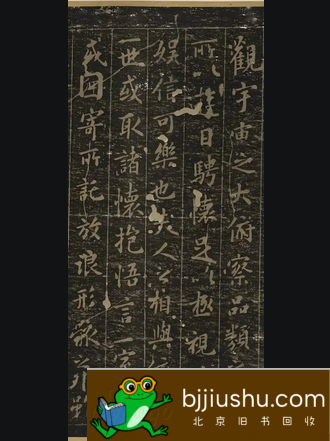 觀宇宙之大俯察品類
所以遊目騁懷足以極視
娛信可樂也夫人之相與
一世或取諸懷抱悟言一室
或因寄所託放浪形骸之外雖
bjjiushu.com
北京旧书回收